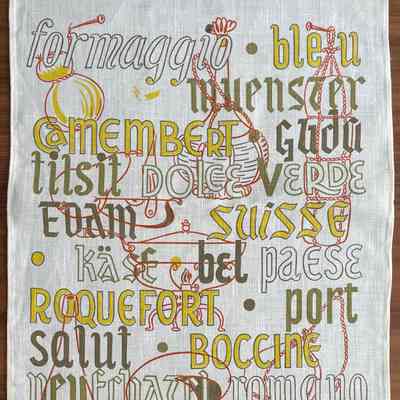 formaggio • bleu
muenster
CAMEMBERT • GUDU
tilsit DOLCE VERDE
EDAM SUISSE
• KÄSE • bel PAESE
ROQUEFORT • port
salut • BOCCINE
neufchatel romano